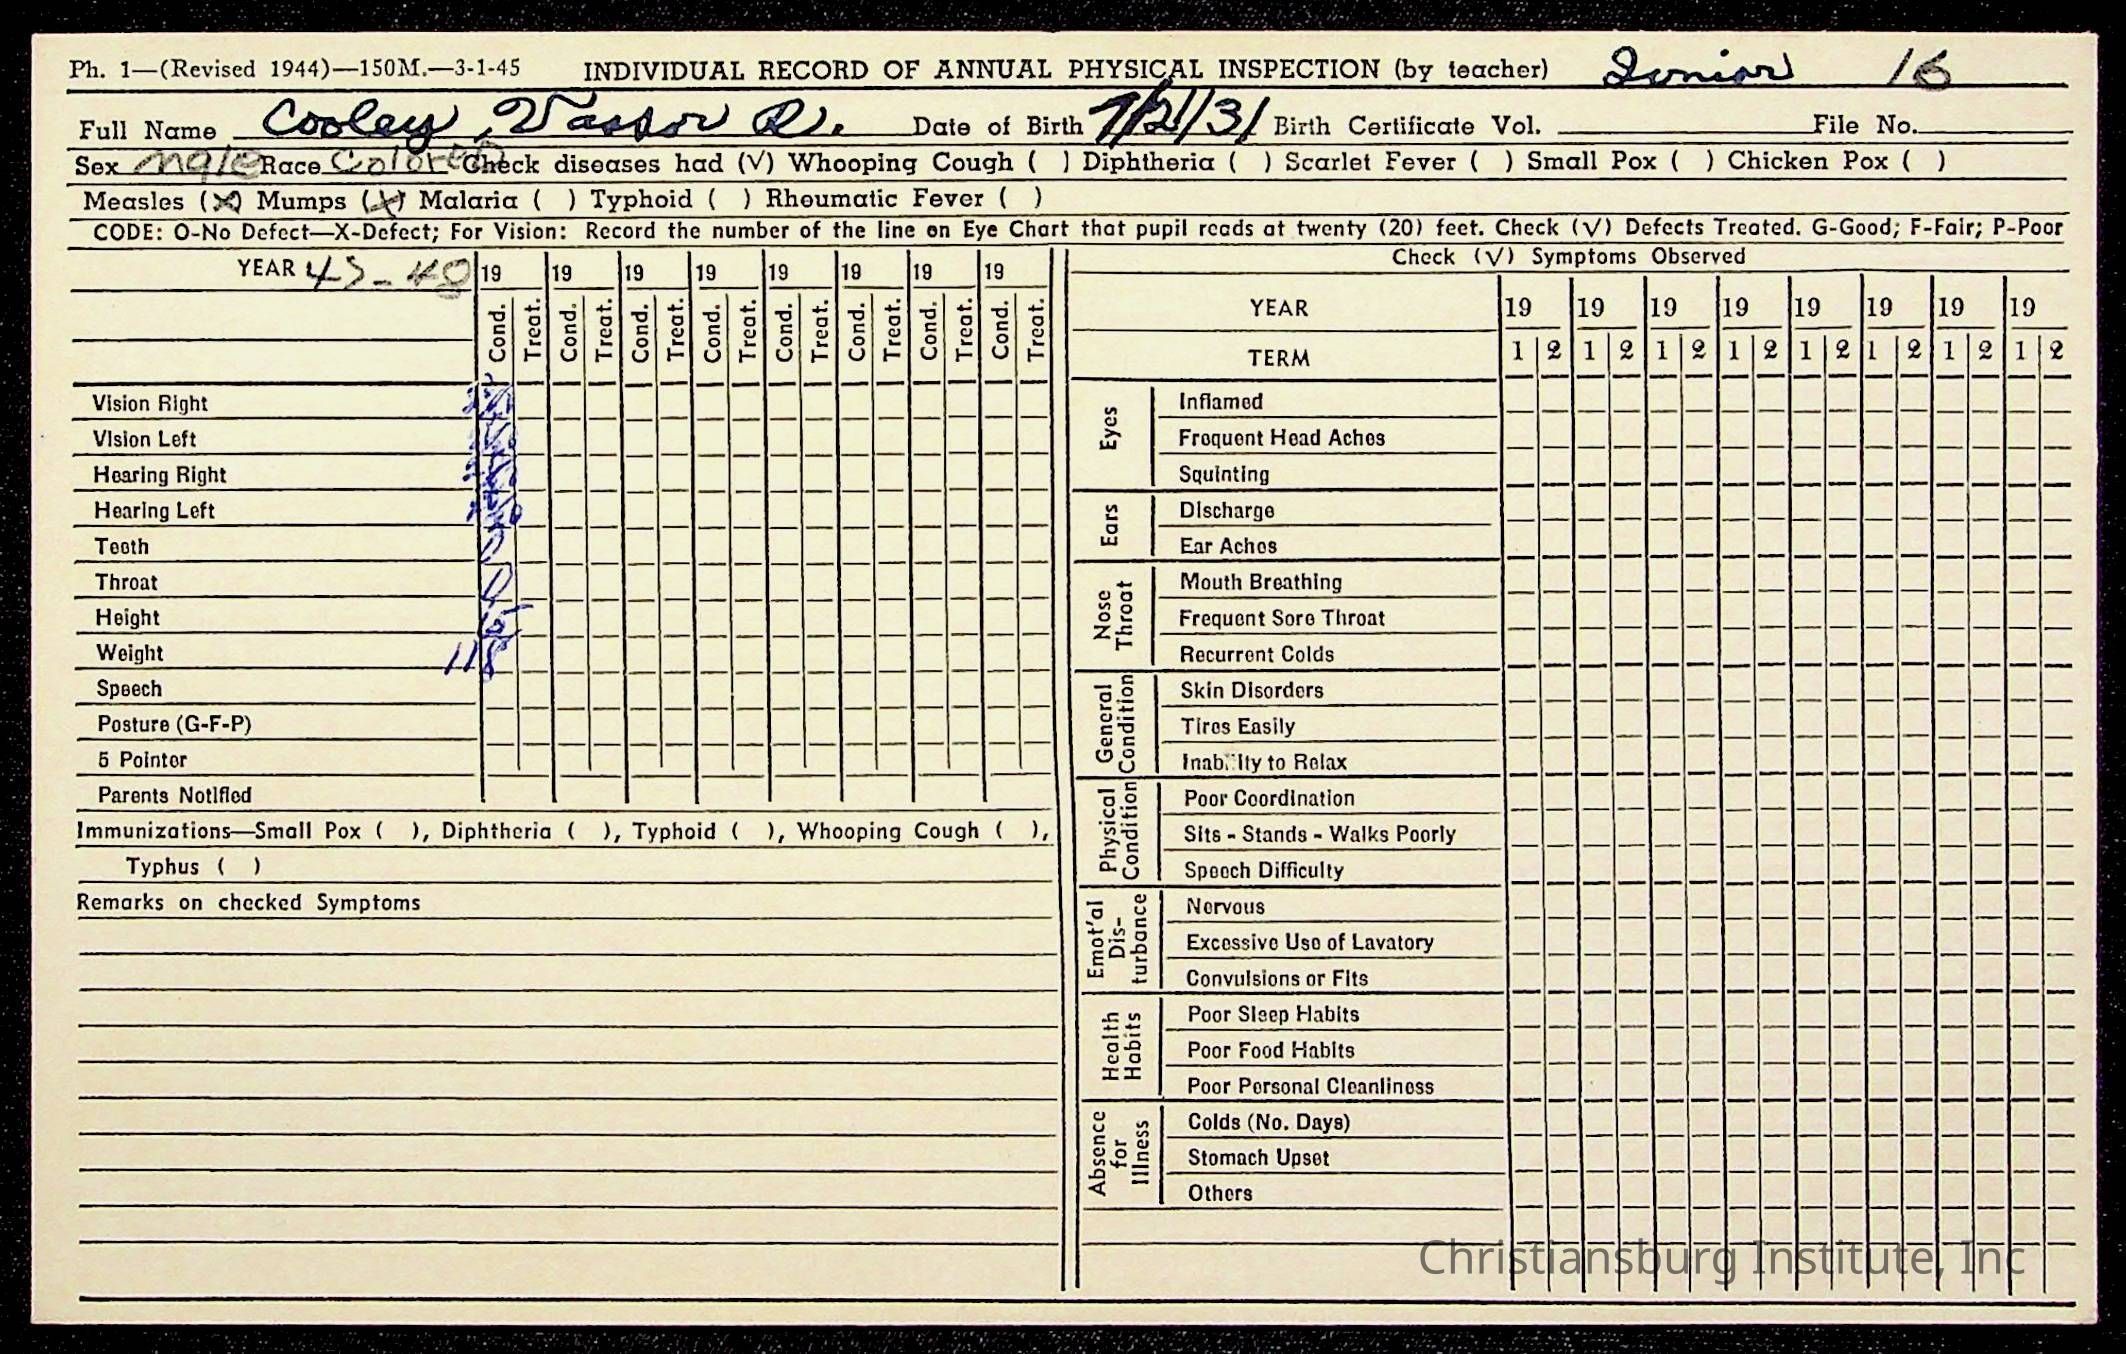 Ph. 1—(Revised 1944)—150M.—3-1-45 INDIVIDUAL RECORD OF ANNUAL PHYSICAL INSPECTION (by teacher) Junior 16
Full Name Cooley, Vassor R. Date of Birth 7/21/31 Birth Certificate Vol. File No.
Sex male Race Colored Check diseases had (√) Whooping Cough ( ) Diphtheria ( ) Scarlet Fever ( ) Small Pox ( ) Chicken Pox ( )
Measles (X) Mumps (X) Malaria ( ) Typhoid ( ) Rheumatic Fever ( )
CODE: O-No Defect—X-Defect; For Vision: Record the number of the line on Eye Chart that pupil reads at twenty (20) feet. Check (√) Defects Treated. G-Good; F-Fair; P-Poor
YEAR 19 19 19 19 19 19 19 19
Cond. Treat. Cond. Treat. Cond. Treat. Cond. Treat. Cond. Treat. Cond. Treat. Cond. Treat. Cond. Treat.
Vision Right
Vision Left
Hearing Right
Hearing Left
Teeth 0
Throat 0
Height
Weight 118
Speech
Posture (G-F-P)
5 Pointer
Parents Notified
Immunizations—Small Pox ( ), Diphtheria ( ), Typhoid ( ), Whooping Cough ( ),
Typhus ( )
Remarks on checked Symptoms
Check (√) Symptoms Observed
YEAR 19 19 19 19 19 19 19 19
TERM 1 2 1 2 1 2 1 2 1 2 1 2 1 2 1 2
Eyes
Inflamed
Frequent Head Aches
Squinting
Ears
Discharge
Ear Aches
Nose Throat
Mouth Breathing
Frequent Sore Throat
Recurrent Colds
General Condition
Skin Disorders
Tires Easily
Inability to Relax
Physical Condition
Poor Coordination
Sits - Stands - Walks Poorly
Speech Difficulty
Emot'al Dis-turbance
Nervous
Excessive Use of Lavatory
Convulsions or Fits
Health Habits
Poor Sleep Habits
Poor Food Habits
Poor Personal Cleanliness
Absence for Illness
Colds (No. Days)
Stomach Upset
Others
Christiansburg Institute, Inc